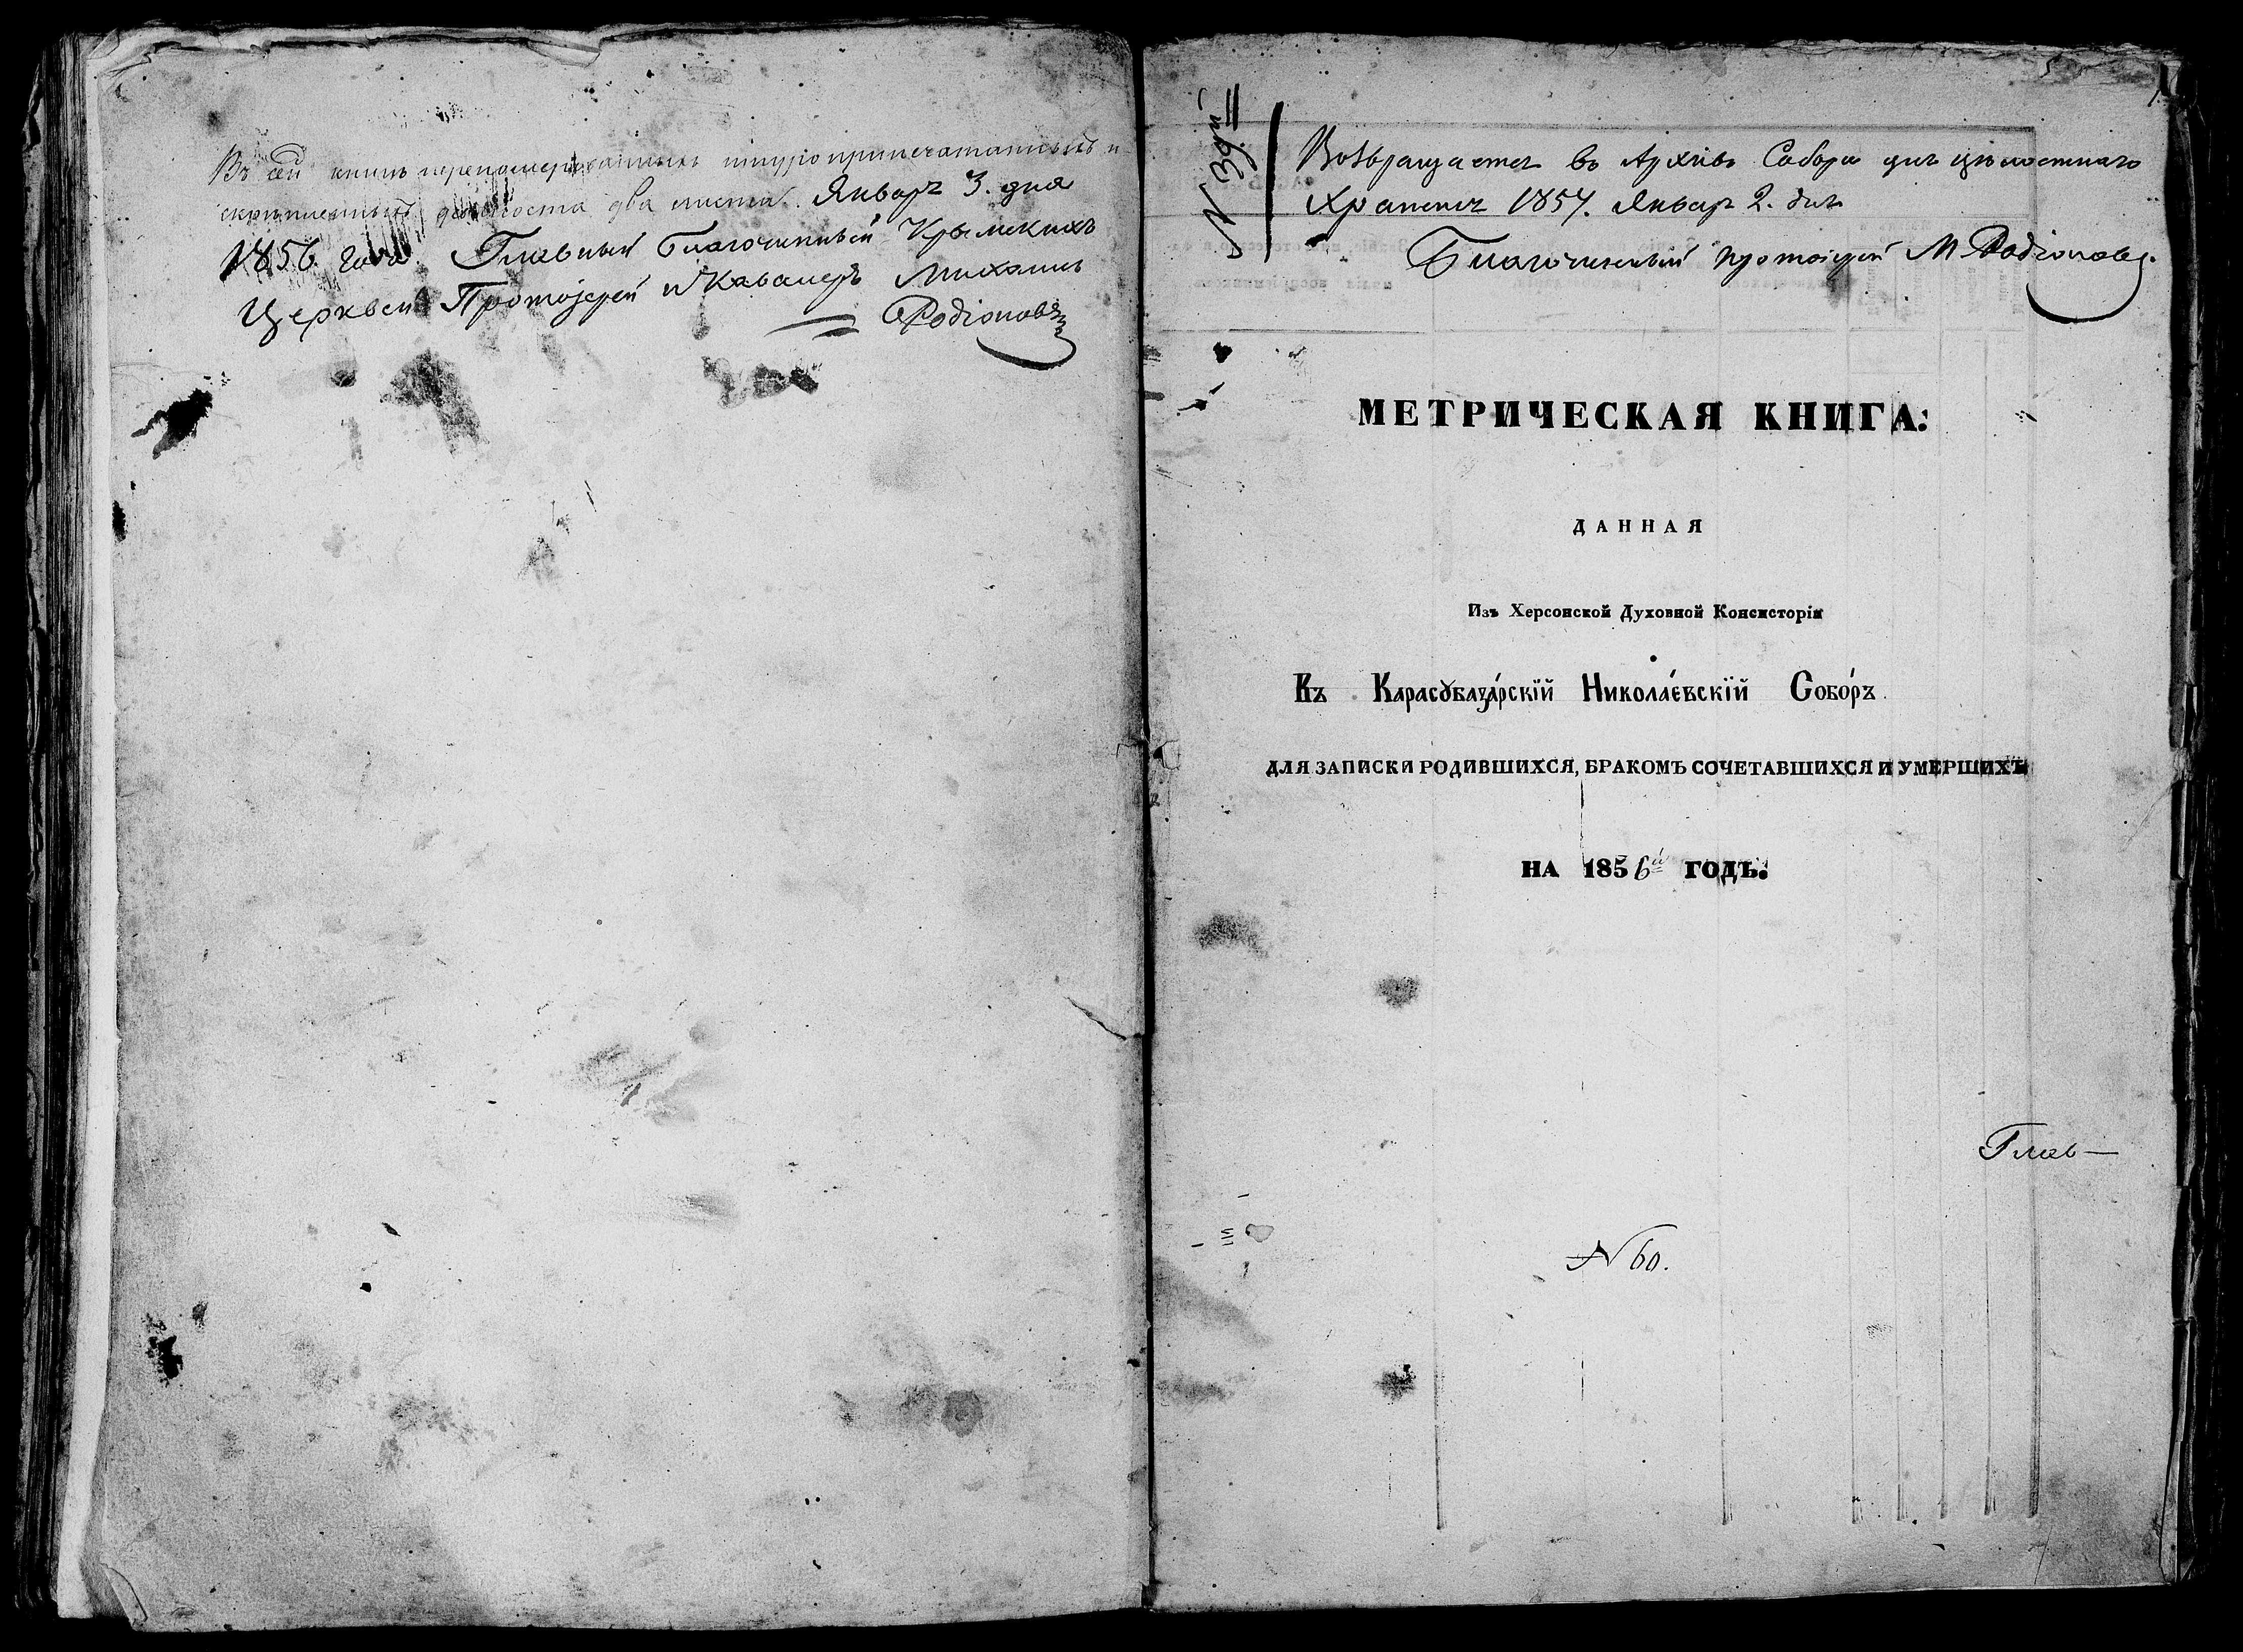 Въ сей книгѣ перенумерованныхъ шнуроприпечатанныхъ и
скрѣпленныхъ два листа. Января 3. дня
1856 года. Главный Благочинный Крымскихъ
Церквей Протоіерей и Кавалеръ Михаилъ
Родіоновъ
N 39й
Возвращается въ Архивъ Собора для цѣлостнаго
храненія 1857. Января 2. дня
Благочинный протоіерей М Родіоновъ.
МЕТРИЧЕСКАЯ КНИГА:
ДАННАЯ
Изъ Херсонской Духовной Консисторіи
Въ Карасꙋбазáрскїй Николáевскїй Собóръ
ДЛЯ ЗАПИСКИ РОДИВШИХСЯ, БРАКОМЪ СОЧЕТАВШИХСЯ И УМЕРШИХЪ
НА 1856й ГОДЪ.
Глав—
N 60.